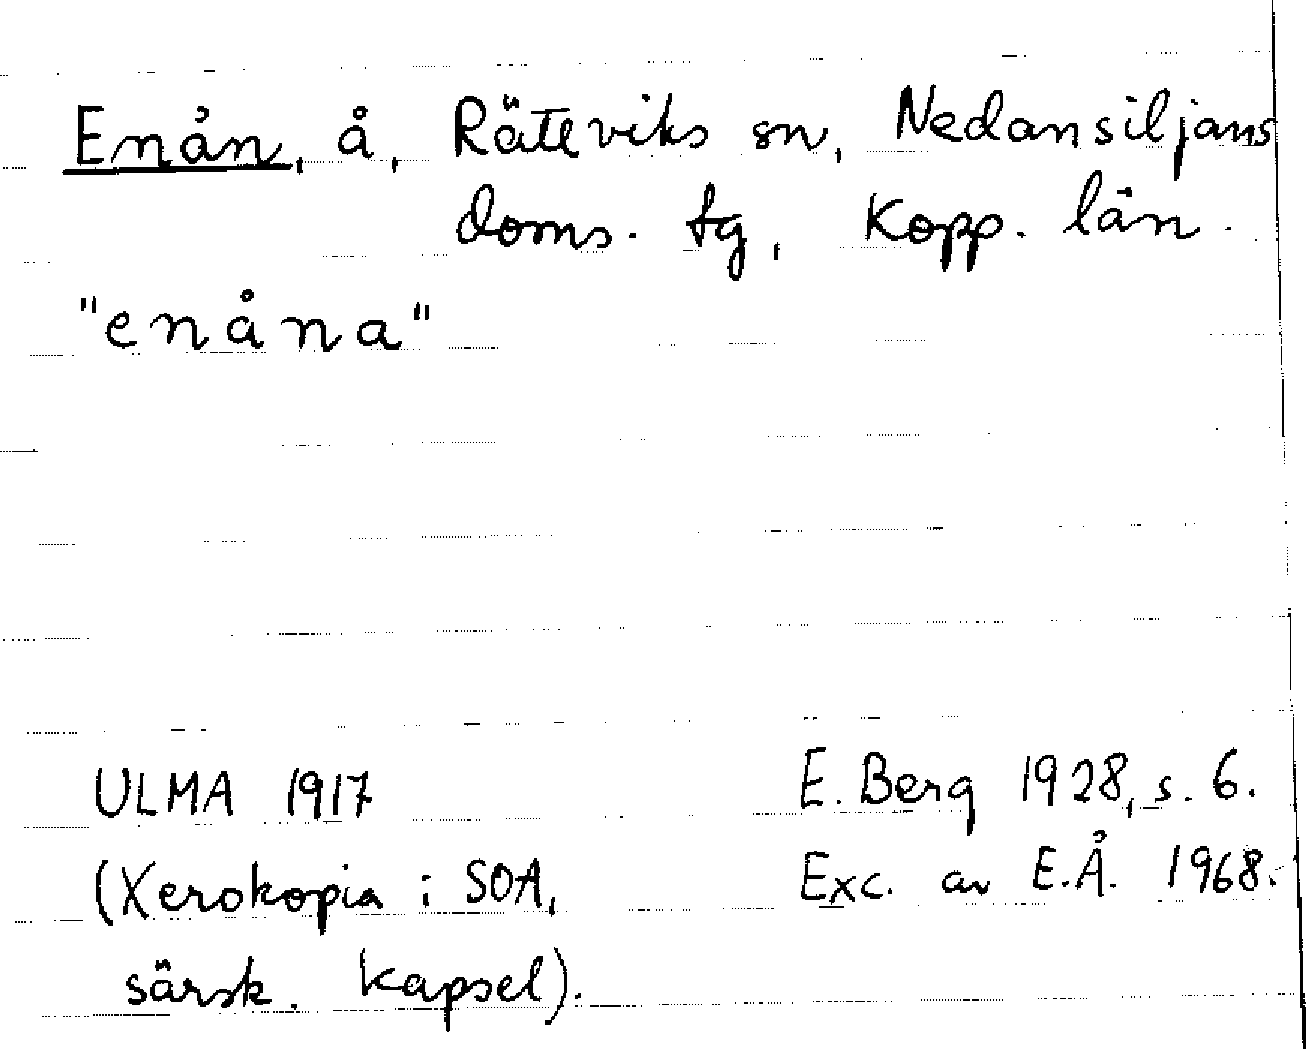 Enån, å, Rättviks sn, Nedansiljans
doms. tg, Kopp. län.
"enåna"
ULMA 1917
(Xerokopia i SOA,
särsk. kapsel).
E. Berg 1928, s. 6.
Exc. av E.Å. 1968.